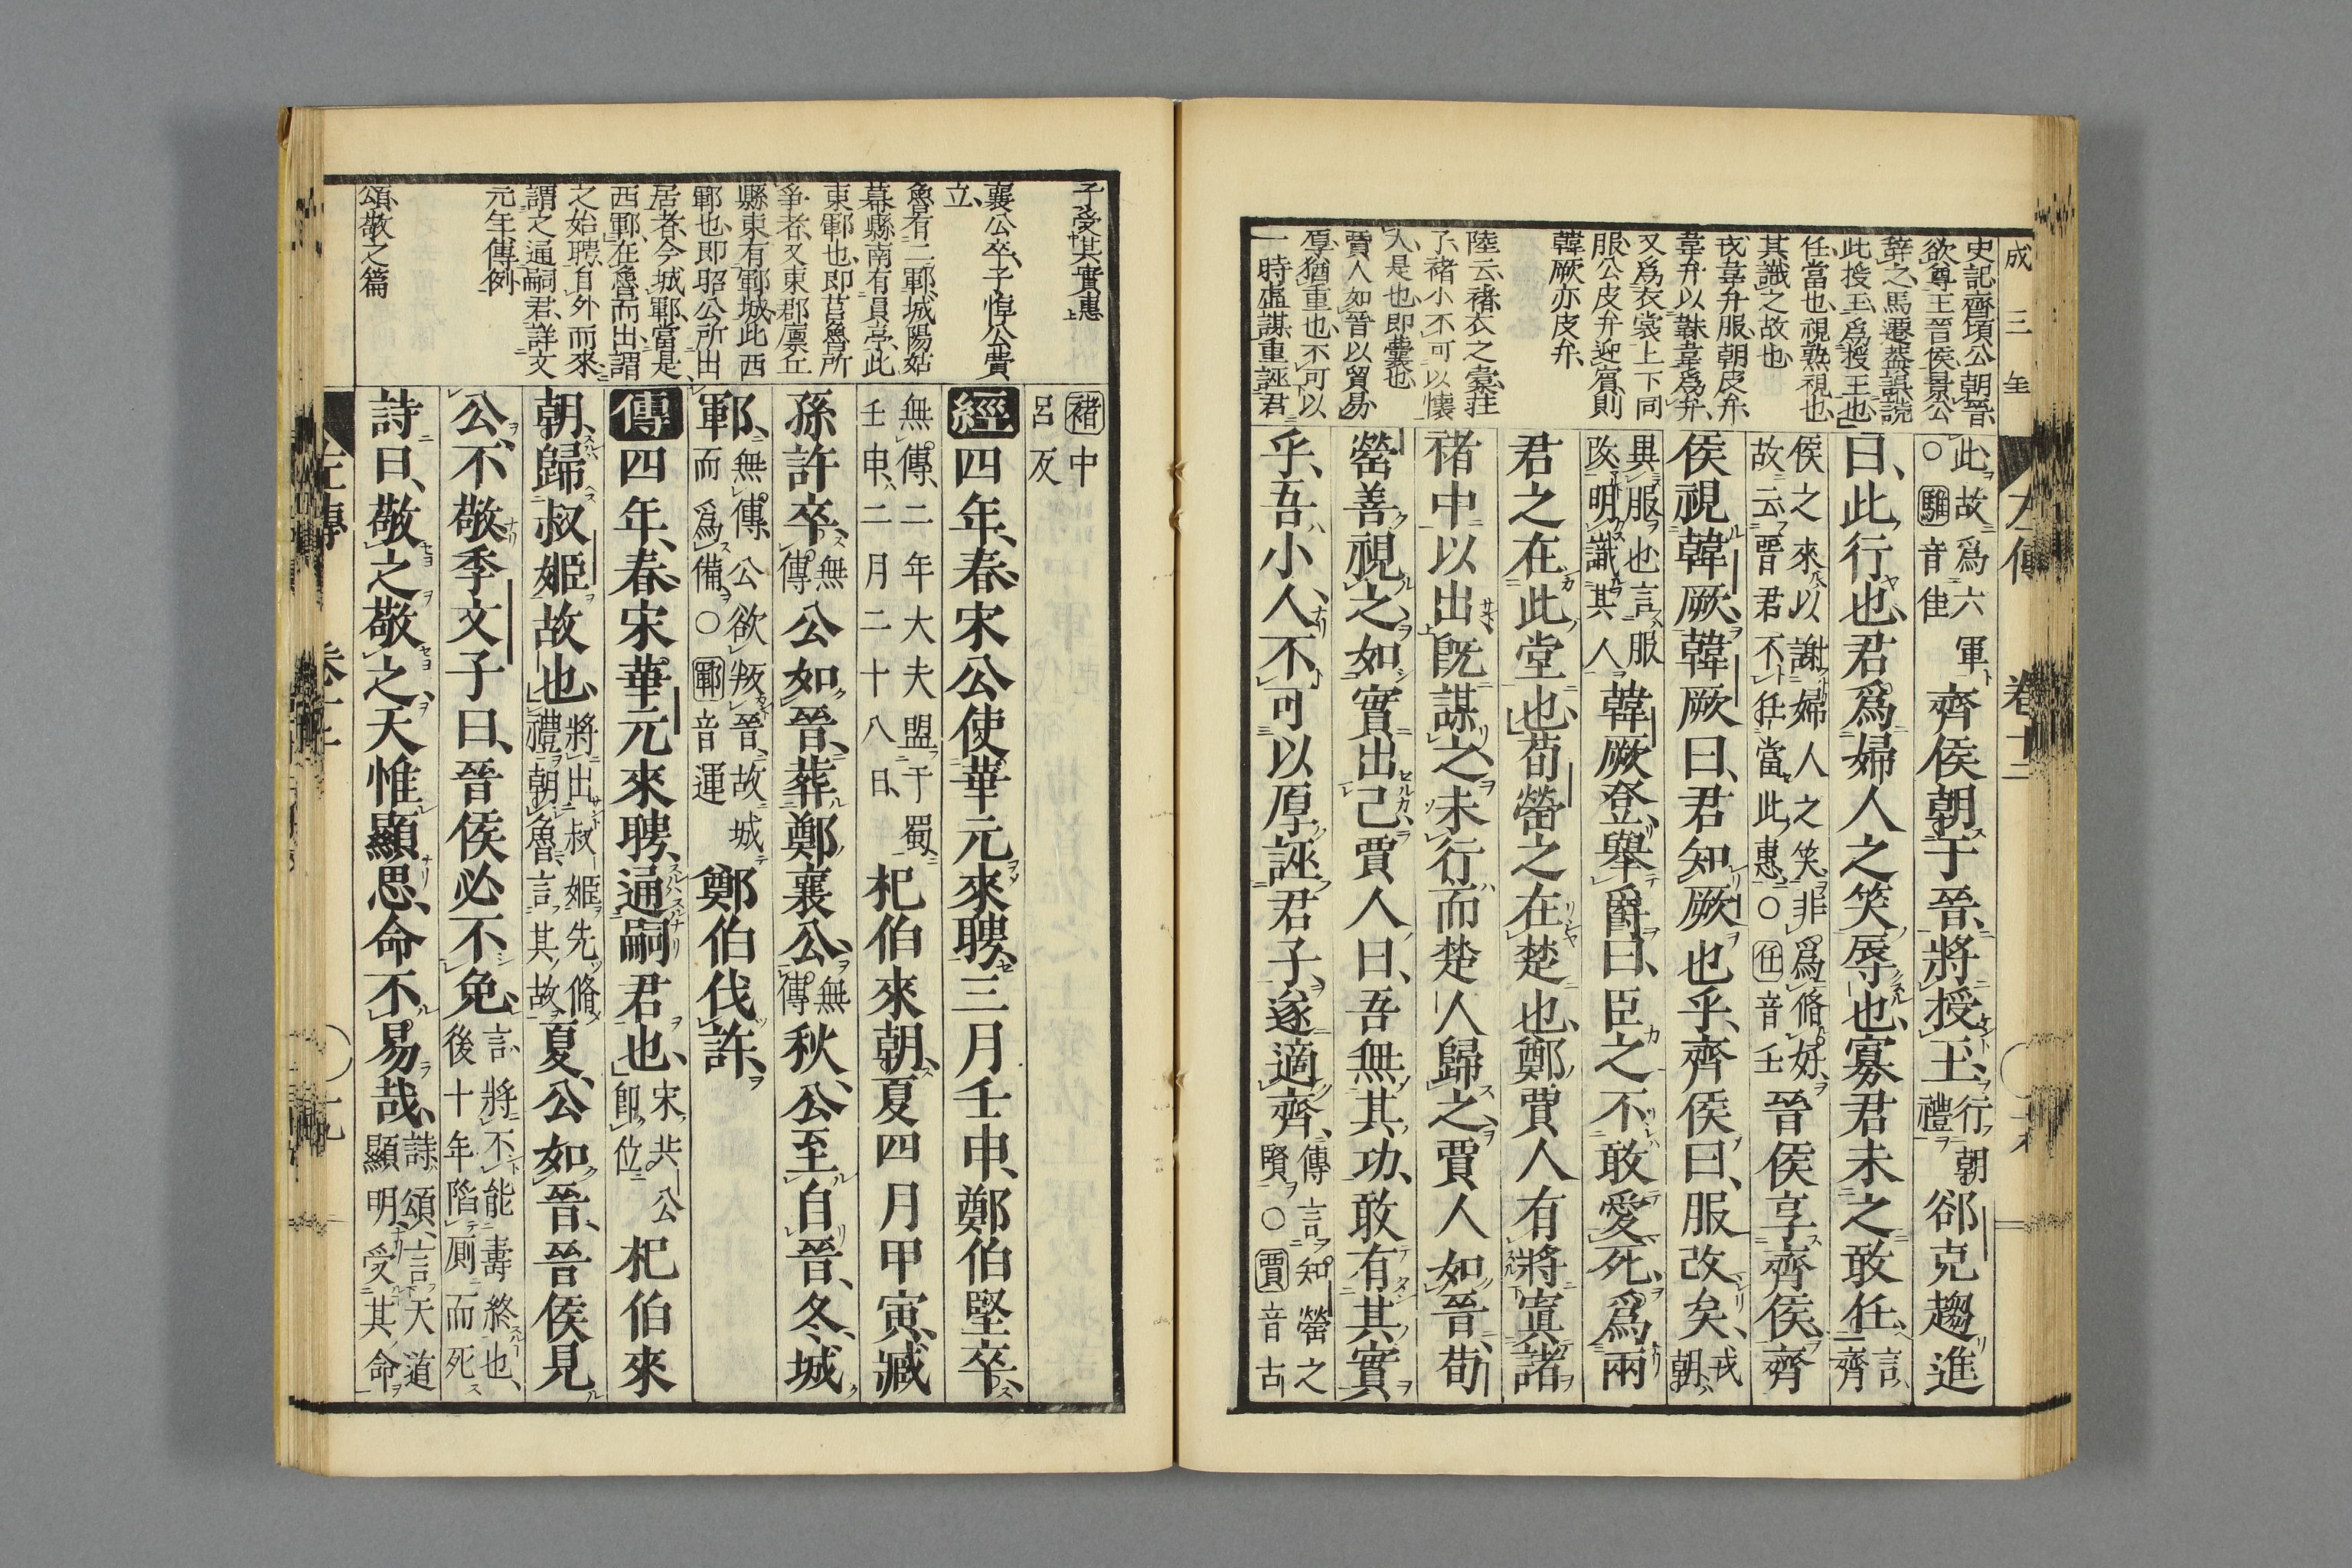 成三年
史記齊頃公朝晉
欲尊王晉侯景公
辭之馬遷葢誤読
此授玉爲授王也
任當也視熟視也
其識之故也
戎韋弁服朝皮弁
韋弁以韎韋爲弁
又爲衣裳上下同
服公皮弁迎賓則
韓厥亦皮弁
陸云褚衣之橐莊
子褚小不可以懷
大是也即囊也
賈人如晉以貿易
厚猶重也不可以
一時虛謀重誣君
左傳 卷十二
此故爲六軍
○騅音隹
齊侯朝于晉將授玉
行朝
禮
郤克趨進
曰此行也君爲婦人之笑辱也寡君未之敢任
言
齊
侯之來以謝婦人之笑非爲脩好
故云晉君不任當此惠○任音壬
晉侯享齊侯齊
侯視韓厥韓厥曰君知厥也乎齊侯曰服改矣
戎
朝
異服也言服
改明識其人
韓厥登舉爵曰臣之不敢愛死爲兩
君之在此堂也荀罃之在楚也鄭賈人有將寘諸
褚中以出旣謀之未行而楚人歸之賈人如晉荀
罃善視之如實出己賈人曰吾無其功敢有其實
乎吾小人不可以厚誣君子遂適齊
傳言知罃之
賢○賈音古
子受其實惠
襄公卒子悼公費
立
魯有二鄆城陽姑
幕縣南有員亭此
東鄆也即莒魯所
爭者又東郡廩丘
縣東有鄆城此西
鄆也即昭公所出
居者今城鄆當是
西鄆在魯而出謂
之始聘自外而來
謂之通嗣君詳文
元年傳例
頌敬之篇
褚中
呂反
經四年春宋公使華元來聘三月壬申鄭伯堅卒
無傳二年大夫盟于蜀
壬申二月二十八日
杞伯來朝夏四月甲寅臧
孫許卒
無
傳
公如晉葬鄭襄公
無
傳
秋公至自晉冬城
鄆
無傳公欲叛晉故城
而爲備○鄆音運
鄭伯伐許
傳四年春宋華元來聘通嗣君也
宋共公
卽位
杞伯來
朝歸叔姬故也
將出叔姬先脩
禮朝魯言其故
夏公如晉晉侯見
公不敬季文子曰晉侯必不免
言將不能壽終也
後十年陷厠而死
詩曰敬之敬之天惟顯思命不易哉
詩頌言天道
顯明受其命
左傳 卷十二